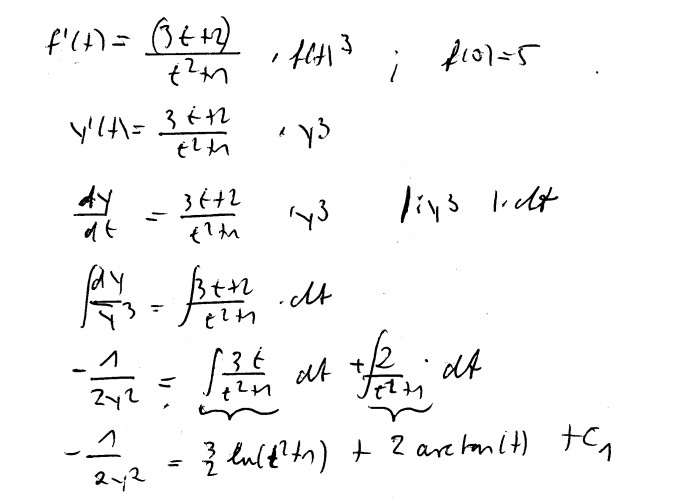 f'(t) = (3t+2)/(t²+1) · f(t)³ ; f(0)=5
y'(t) = 3t+2/t²+1 · y³
dy/dt = 3t+2/t²+1 · y³ |:y³ |·dt
∫dy/y³ = ∫3t+2/t²+1 · dt
-1/2y² = ∫3t/t²+1 dt + ∫2/t²+1 · dt
-1/2y² = 3/2 ln(t²+1) + 2 arctan(t) + C₁